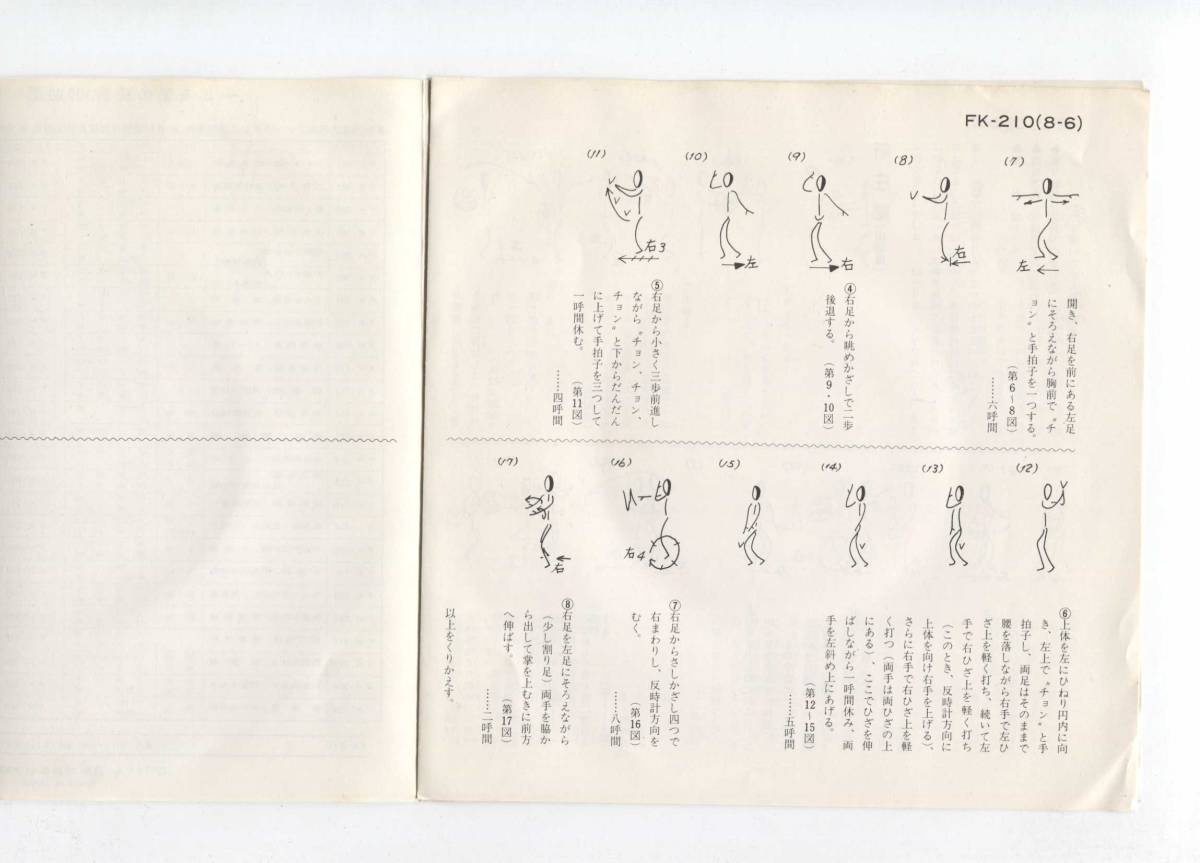 FK-210(8-6)
(7)
左
(8)
右
(9)
右
(10)
左
(11)
右3
開き、右足を前にある左足
にそろえながら胸前で〝チ
ョン〟と手拍子を一つする。
(第6〜8図)
……六呼間
④右足から眺めかざしで二歩
後退する。
(第9・10図)
⑤右足から小さく三歩前進し
ながら〝チョン、チョン、
チョン〟と下からだんだん
に上げて手拍子を三つして
一呼間休む。
(第11図)
……四呼間
(12)
(13)
(14)
(15)
(16)
右4
(17)
右
⑥上体を左にひねり円内に向
き、左上で〝チョン〟と手
拍子し、両足はそのままで
腰を落しながら右手で左ひ
ざ上を軽く打ち、続いて左
手で右ひざ上を軽く打ち
(このとき、反時計方向に
上体を向け右手を上げる)、
さらに右手で右ひざ上を軽
く打つ(両手は両ひざの上
にある)、ここでひざを伸
ばしながら一呼間休み、両
手を左斜め上にあげる。
(第12〜15図)
……五呼間
⑦右足からさしかざし四つで
右まわりし、反時計方向を
むく。
(第16図)
……八呼間
⑧右足を左足にそろえながら
(少し割り足)両手を脇か
ら出して掌を上むきに前方
へ伸ばす。
(第17図)
……二呼間
以上をくりかえす。